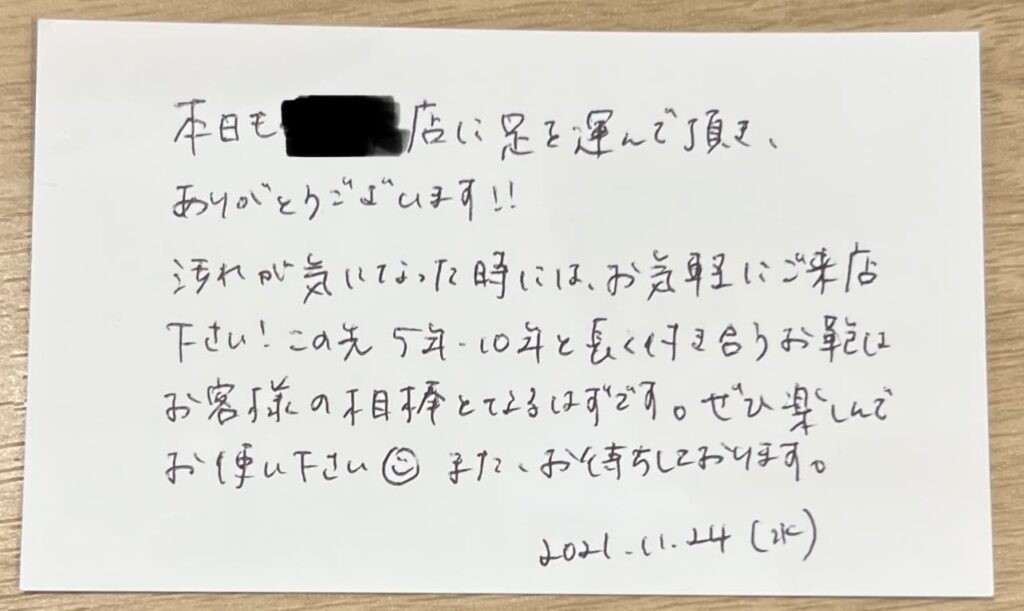 本日も 店に足を運んで頂き、
ありがとうございます!!
汚れが気になった時には、お気軽にご来店
下さい!この先5年・10年と長く付き合うお鞄は
お客様の相棒となるはずです。ぜひ楽しんで
お使い下さい☺ また、お待ちしております。
2021.11.24(水)